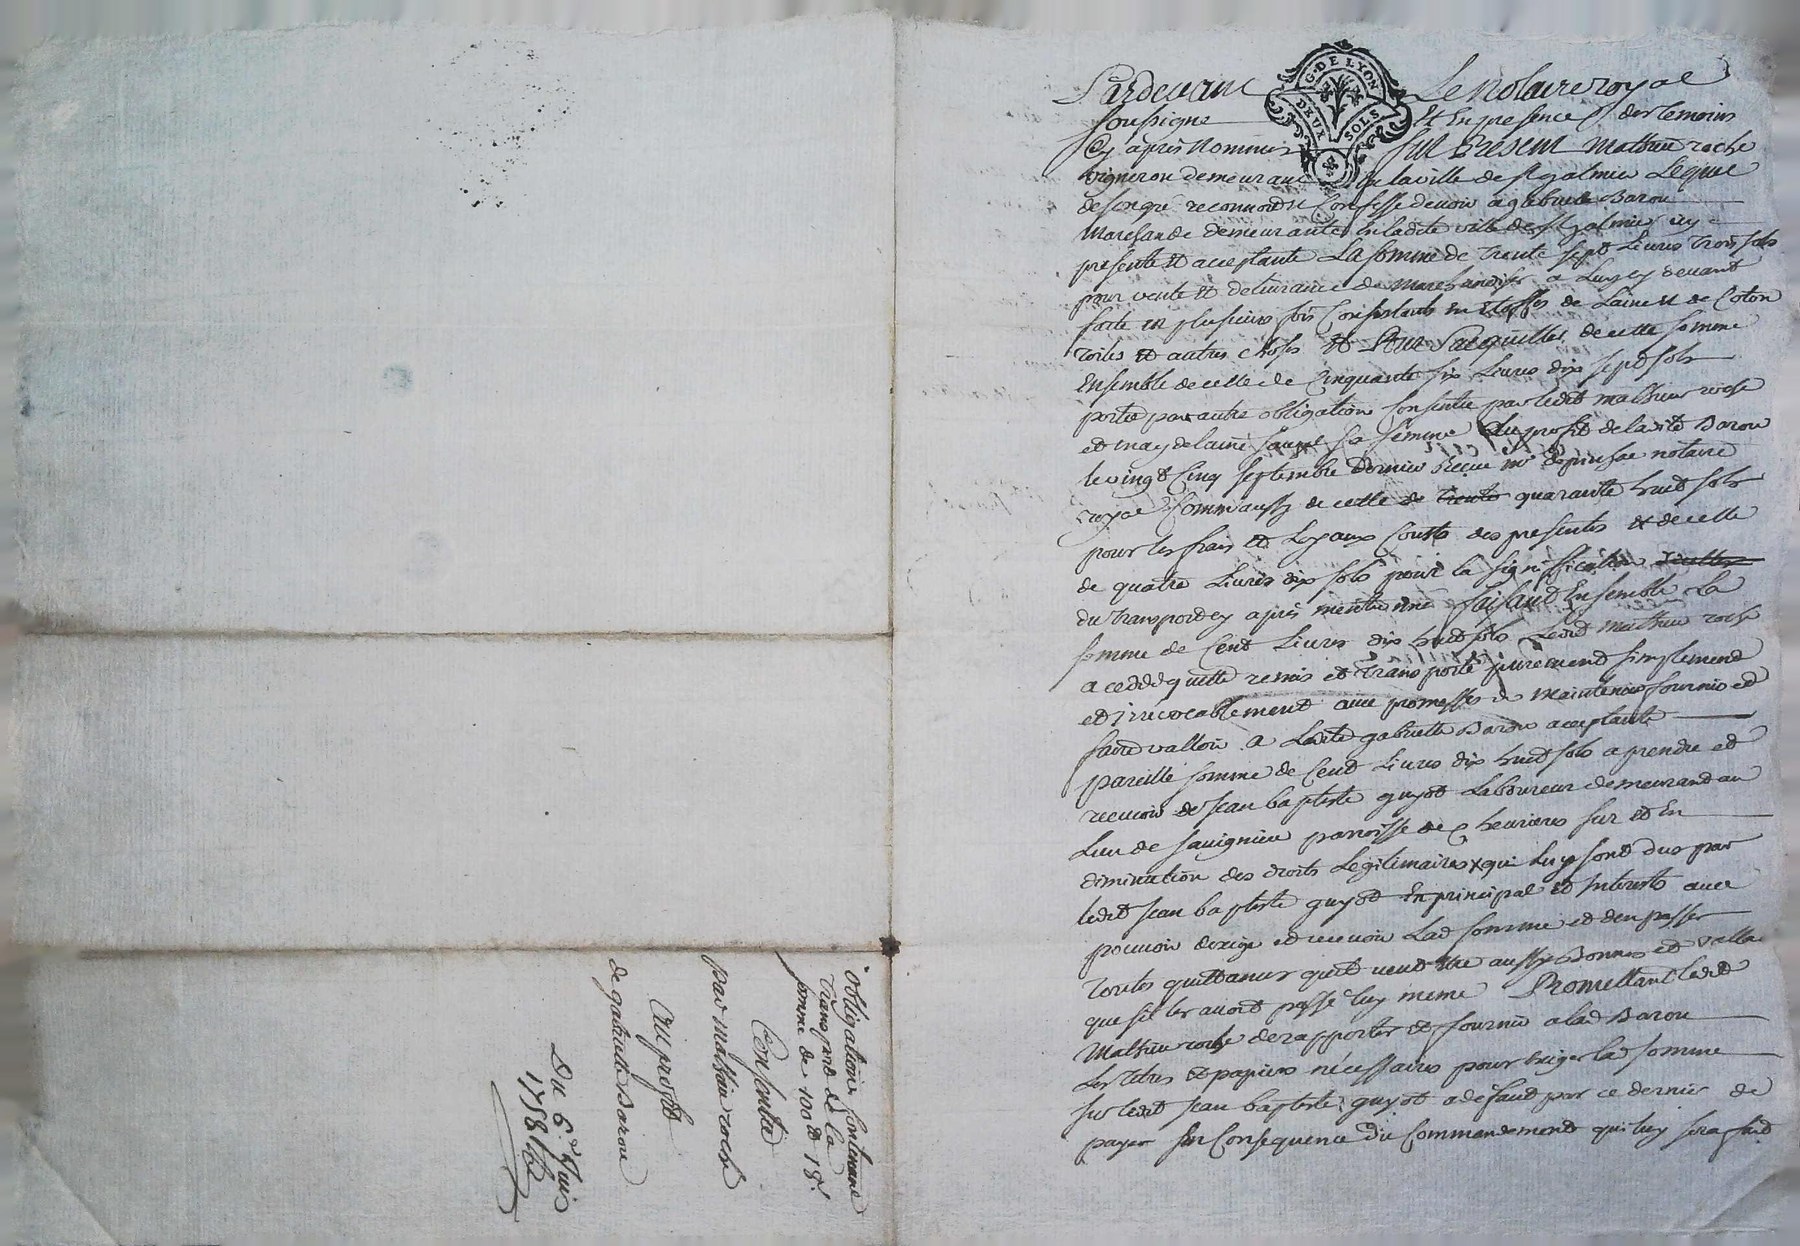 G. DE LYON
DEUX SOLS
Pardevant Le Notaire royal
soussigné Et En presence des temoins
Cy apres Nommes fut Present Mathieu roche
vigneron demeurant En la ville de st galmier Lequel
de son gré reconnoist et Confesse devoir a gabrielle Baron
Marchande demeurante En ladite ville de st galmier icy
presente et acceptante La somme de trente sept Livres trois sols
pour vente et delivrance de marchandises a Luy cy devant
faite en plusieurs fois Consistants en etoffes de Laine et de Coton
toiles et autres choses et Pour S'acquitter de cette somme
Ensemble de celle de Cinquante six Livres dix sept sols
portée par autre obligation Consentie par ledit mathieu roche
et magdelaine sa femme Au profit de ladite Baron
le vingt Cinq septembre dernier reçue me notaire
royal Comm'aussy de celle de trente quarante huit sols
pour les frais et Loyaux Couts des presentes et de celle
de quatre Livres dix sols pour la signiffication
du transport cy apres mentionné faisant Ensemble La
somme de Cent Livres dix huit sols Ledit mathieu roche
a cedé quitté remis et transporté purement simplement
et irrevocablement avec promesses de maintenir fournir et
faire valloir a Ladite gabrielle Baron acceptante
pareille somme de Cent Livres dix huit sols a prendre et
recevoir de Jean baptiste guyot Laboureur demeurant au
Lieu de savignieu parroisse de Chevrieres sur et En
diminution des droits Legitimaires qui Luy sont dus par
ledit Jean baptiste guyot En principal et Interests avec
pouvoir d'exiger et recevoir Lad somme et d'en passer
toutes quittances qu'il veut etre aussy Bonnes et valla
que s'il les avoit passé luy meme Promettant ledit
Mathieu roche de rapporter et fournir a lad Baron
Les titres et papiers nécessaires pour Exiger lad somme
sur ledit Jean baptiste guyot a défaut par ce dernier de
payer En Consequence du Commandement qui luy sera fait
obligation Contenant
transport de la
somme de 100 lt 18 s
Consentie
par Mathieu roche
Au profit
de gabrielle Baron
Du 6e Juin
1758